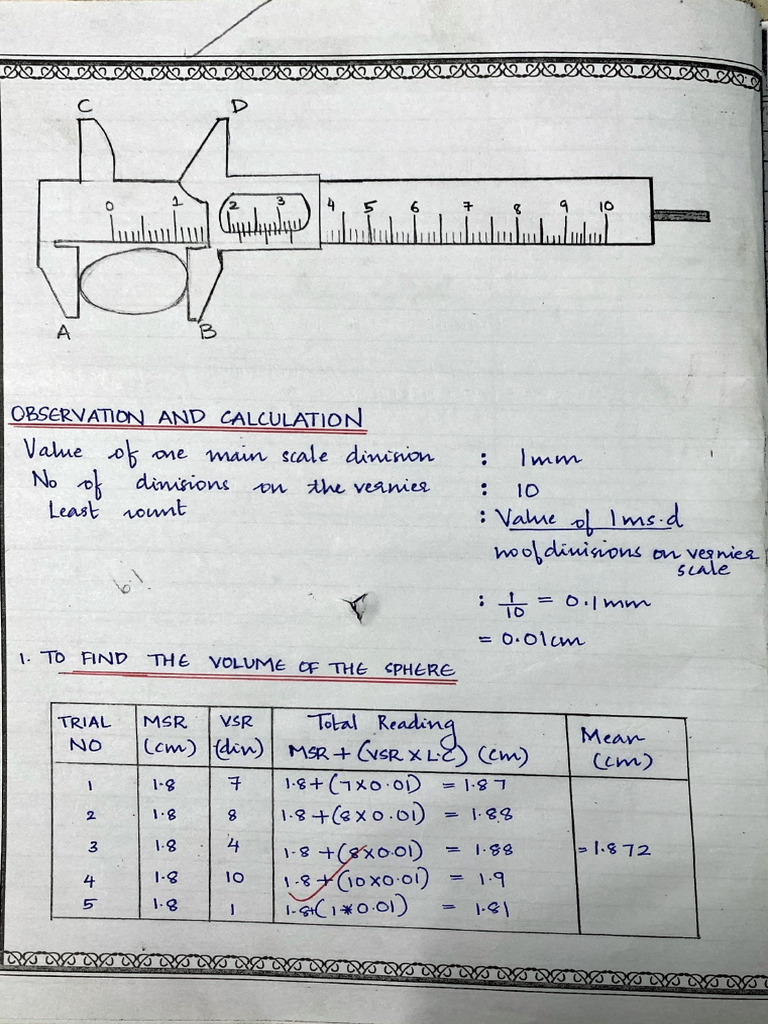 C D
0 1 2 3 4 5 6 7 8 9 10
A B
OBSERVATION AND CALCULATION
Value of one main scale division : 1mm
No of divisions on the vernier : 10
Least count : Value of 1 m.s.d
no of divisions on vernier
scale
6.1
: 1/10 = 0.1mm
= 0.01cm
1. TO FIND THE VOLUME OF THE SPHERE
TRIAL MSR VSR Total Reading Mean
NO (cm) (div) MSR + (VSR X L.C) (cm) (cm)
1 1.8 7 1.8+(7x0.01) = 1.87
2 1.8 8 1.8+(8x0.01) = 1.88
3 1.8 4 1.8+(8x0.01) = 1.88 = 1.872
4 1.8 10 1.8+(10x0.01) = 1.9
5 1.8 1 1.8+(1*0.01) = 1.81